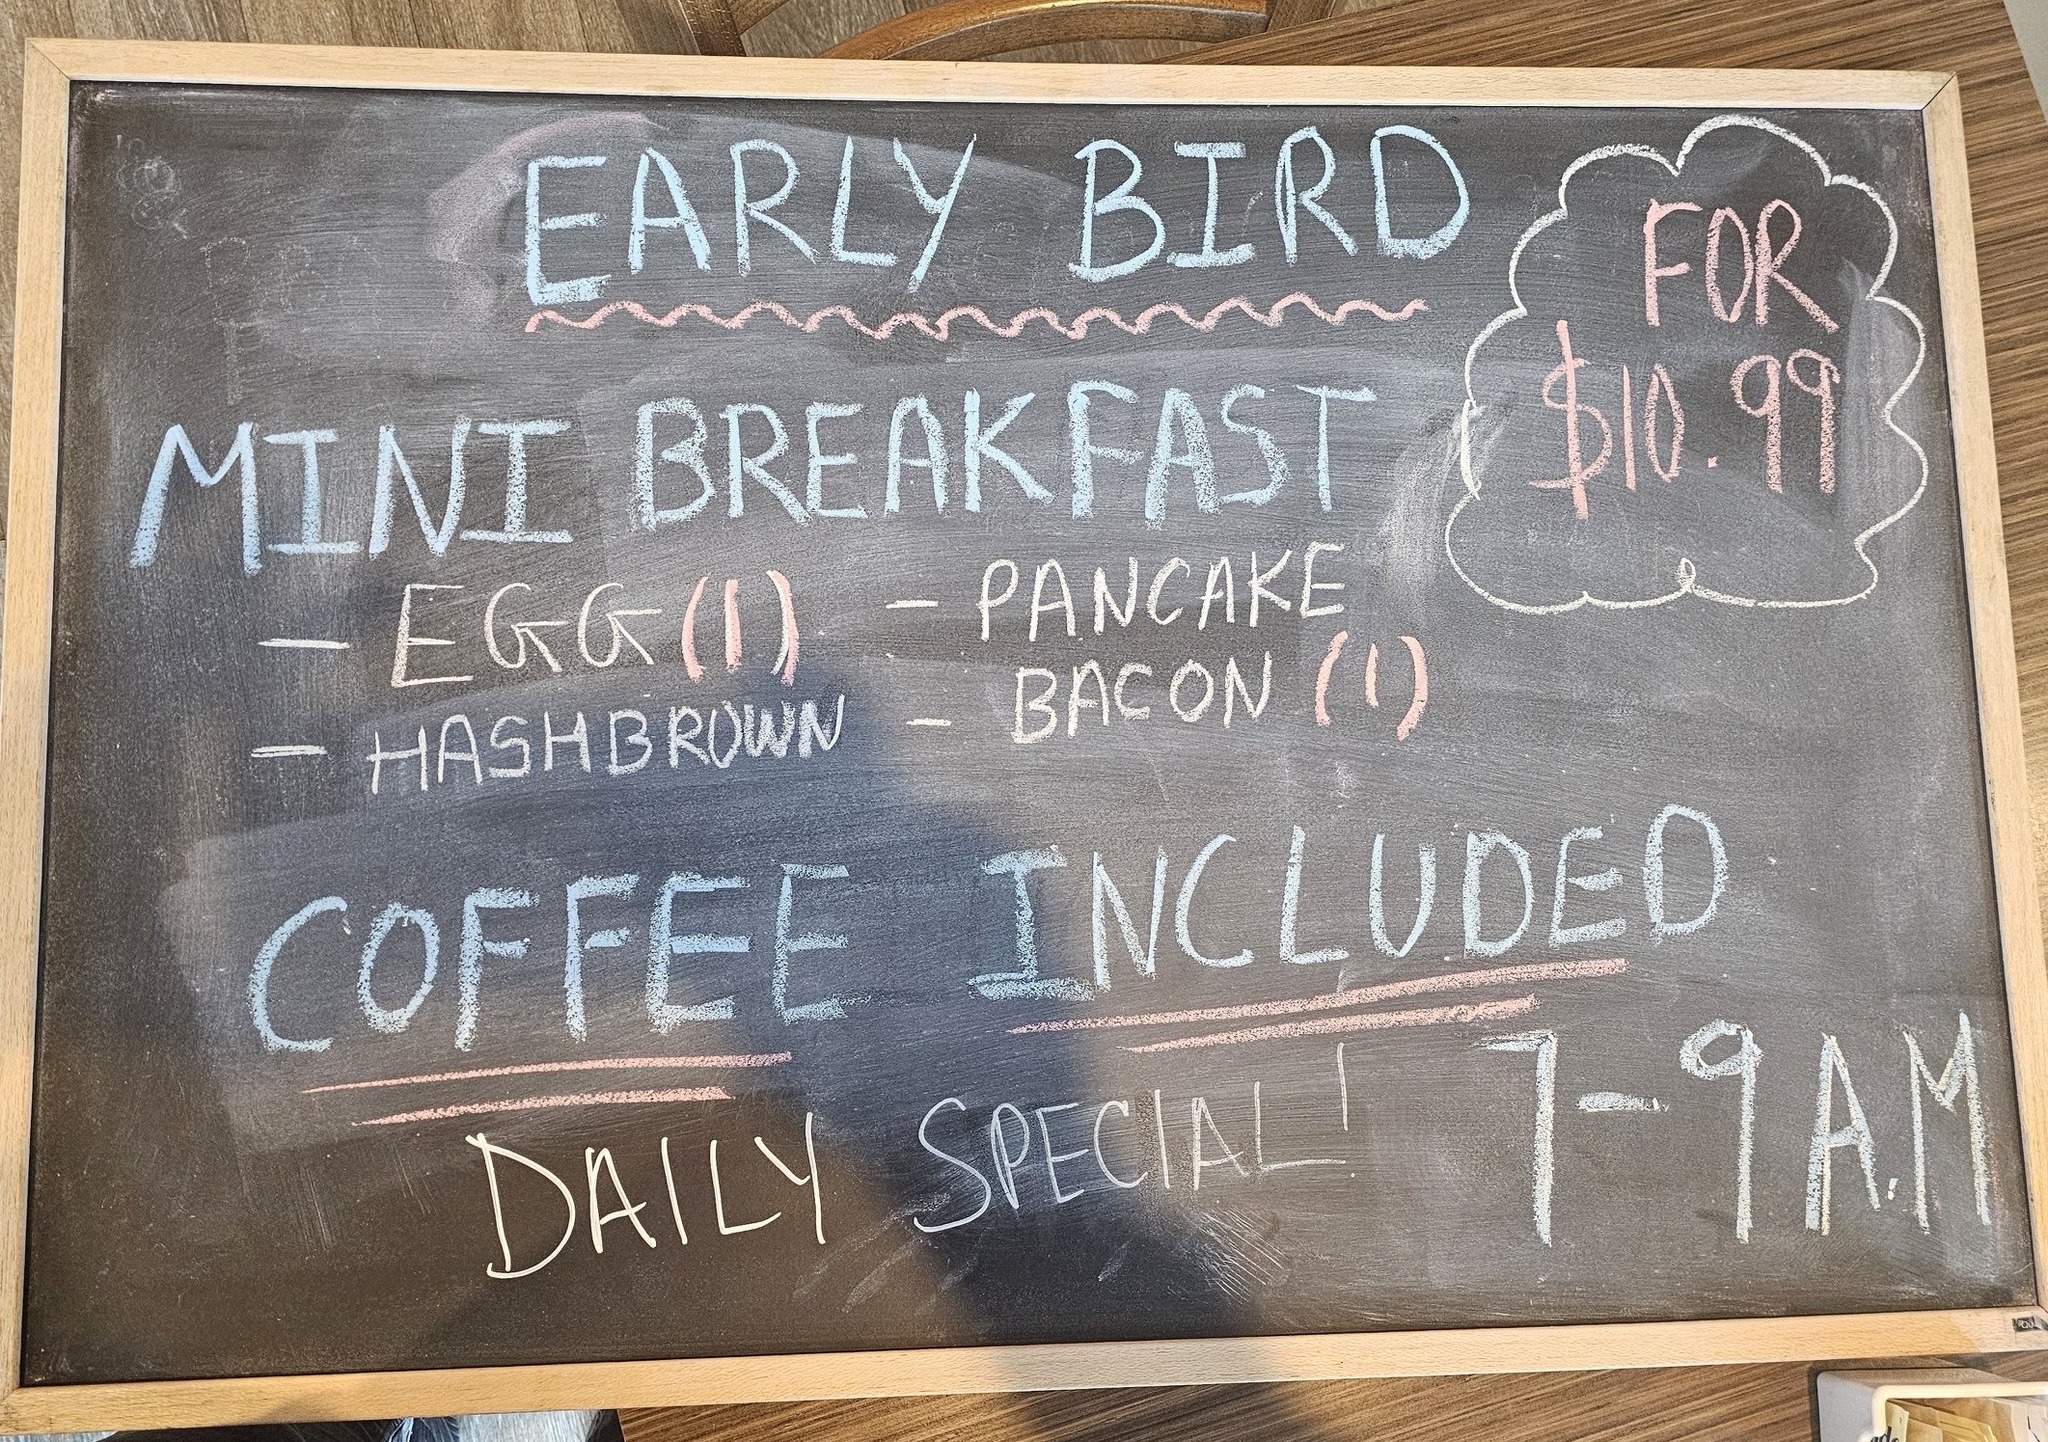 EARLY BIRD
FOR
$10.99
MINI BREAKFAST
- EGG (1) - PANCAKE
- HASHBROWN - BACON (1)
COFFEE INCLUDED
DAILY SPECIAL! 7-9 A.M